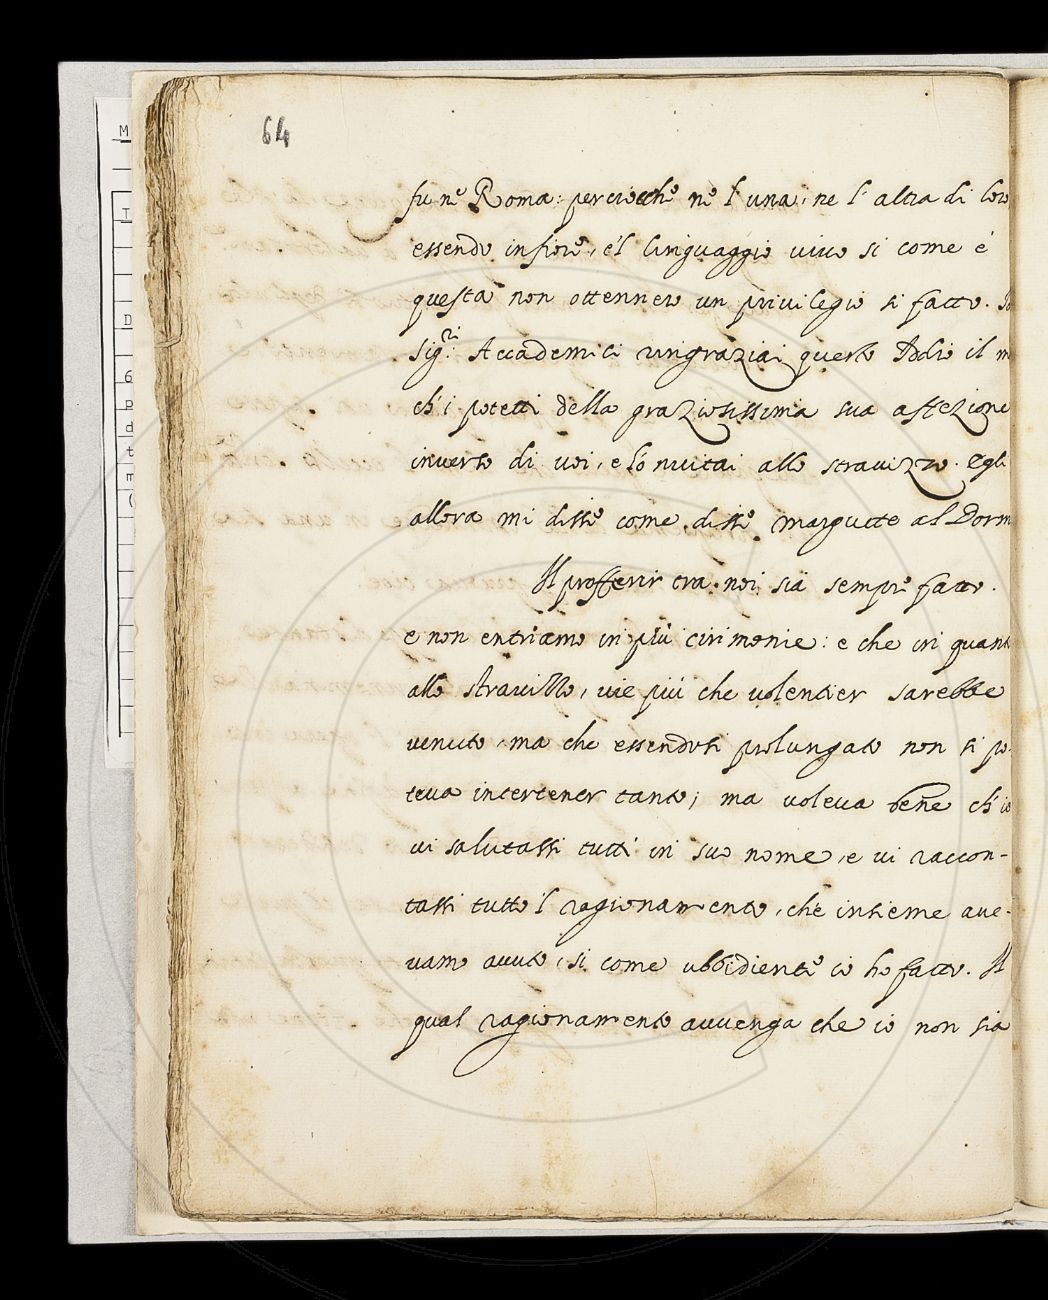 64
fu nè Roma: perciocchè nè l'una, ne l'altra di loro
essendo in fiore, e'l linguaggio vivo si come è
questa non ottennero un privilegio si fatto. Io
Sig.ri Accademici ringraziai questo Iddio il m
ch'i potetti della graziosissima sua affezione
inverso di voi, e lo nvitai allo stravizzo. Egli
allora mi disse come disse Margutte al Dorm
Il profferir tra noi sia sempre fatto.
e non entriamo in più cirimonie: e che in quant
allo stravizzo, vie più che volentier sarebbe
venuto, ma che essendosi prolungato non si po-
teva intertener tanto; ma voleva bene ch'io
vi salutassi tutti in suo nome, e vi raccon-
tassi tutto'l ragionamento, che insieme ave-
vamo avuto, si come ubbidiente io ho fatto. Il
qual ragionamento avvenga che io non sia